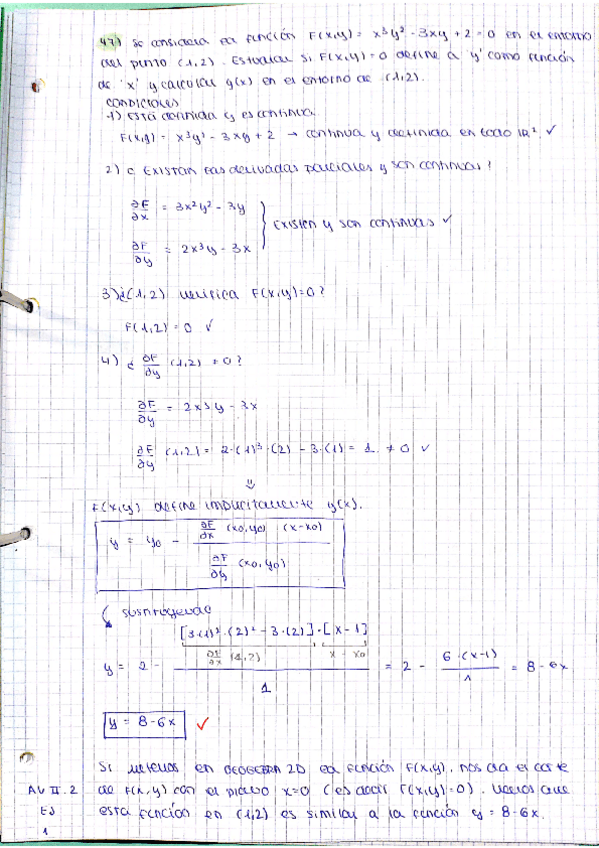 47) Se considera la función F(x,y) = x³y² - 3xy + 2 = 0 en el entorno
del punto (1,2). Estudiar si F(x,y) = 0 define a 'y' como función
de 'x' y calcular y(x) en el entorno de (1,2).
CONDICIONES
1) Está definida y es continua
F(x,y) = x³y² - 3xy + 2 → continua y definida en todo ℝ². ✓
2) ¿Existan las derivadas parciales y son continuas?
∂F/∂x = 3x²y² - 3y
existen y son continuas ✓
∂F/∂y = 2x³y - 3x
3) ¿(1,2) verifica F(x,y)=0?
F(1,2) = 0 ✓
4) ¿ ∂F/∂y (1,2) ≠ 0?
∂F/∂y = 2x³y - 3x
∂F/∂y (1,2) = 2·(1)³·(2) - 3·(1) = 1 ≠ 0 ✓
⇓
F(x,y) define implícitamente y(x).
y = y0 - ∂F/∂x (x0,y0) (x-x0)
∂F/∂y (x0,y0)
sustituyendo
[3·(1)²·(2)² - 3·(2)]·[x-1]
∂F/∂x (1,2) x - x0
y = 2 - 1 = 2 - 6·(x-1)/1 = 8 - 6x
y = 8-6x ✓
Si metemos en 2D la función F(x,y), nos da el corte
AV II.2 de F(x,y) con el plano x=0 (es decir F(x,y)=0). Vemos que
EJ esta función en (1,2) es similar a la función y = 8-6x.
1